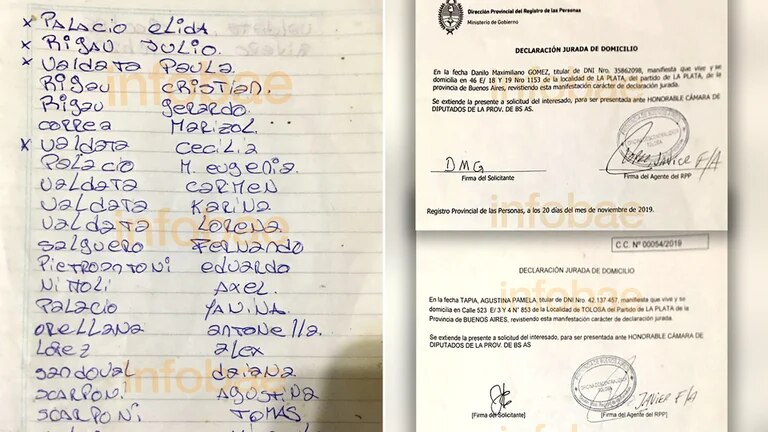 x PALACIO ELIDA
x RIGAU JULIO.
x VALDATA PAULA.
RIGAU CRISTIAN.
RIGAU GERARDO.
CORREA MARIZOL.
x VALDATA CECILIA
PALACIO M. EUGENIA.
VALDATA CARMEN
VALDATA KARINA
VALDATA LORENA
SALGUERO FERNANDO
PIETROANTONI EDUARDO
NITTOLI AXEL.
PALACIO YANINA.
ORELLANA ANTONELLA.
LOREZ ALEX
SANDOVAL DAIANA
SCARPONI AGOSTINA
SCARPONI TOMAS
infobae
infobae
infobae
Dirección Provincial del Registro de las Personas
Ministerio de Gobierno
DECLARACIÓN JURADA DE DOMICILIO
En la fecha Danilo Maximiliano GOMEZ, titular de DNI Nro. 35862098, manifiesta que vive y se
domicilia en 46 E/ 18 Y 19 Nro 1153 de la localidad de LA PLATA, del partido de LA PLATA, de la
provincia de Buenos Aires, revistiendo esta manifestación carácter de declaración jurada.
Se extiende la presente a solicitud del interesado, para ser presentada ante HONORABLE CÁMARA DE
DIPUTADOS DE LA PROV. DE BS AS.
OFICINA DESCENTRALIZADA
TOLOSA
DMG
LOPEZ JAVIER F/A
Firma del Solicitante
Firma del Agente del RPP
Registro Provincial de las Personas, a los 20 días del mes de noviembre de 2019.
infobae
C.C. Nº 00054/2019
DECLARACIÓN JURADA DE DOMICILIO
En la fecha TAPIA, AGUSTINA PAMELA, titular de DNI Nro. 42.137.457, manifiesta que vive y se
domicilia en Calle 523 E/ 3 Y 4 N° 853 de la Localidad de TOLOSA del Partido de LA PLATA de la
Provincia de BUENOS AIRES, revistiendo esta manifestación carácter de declaración jurada.
Se extiende la presente a solicitud del interesado, para ser presentada ante HONORABLE CÁMARA DE
DIPUTADOS DE LA PROV. DE BS AS
JAVIER F/A
[Firma del Solicitante]
[Firma del Agente del RPP]
infobae